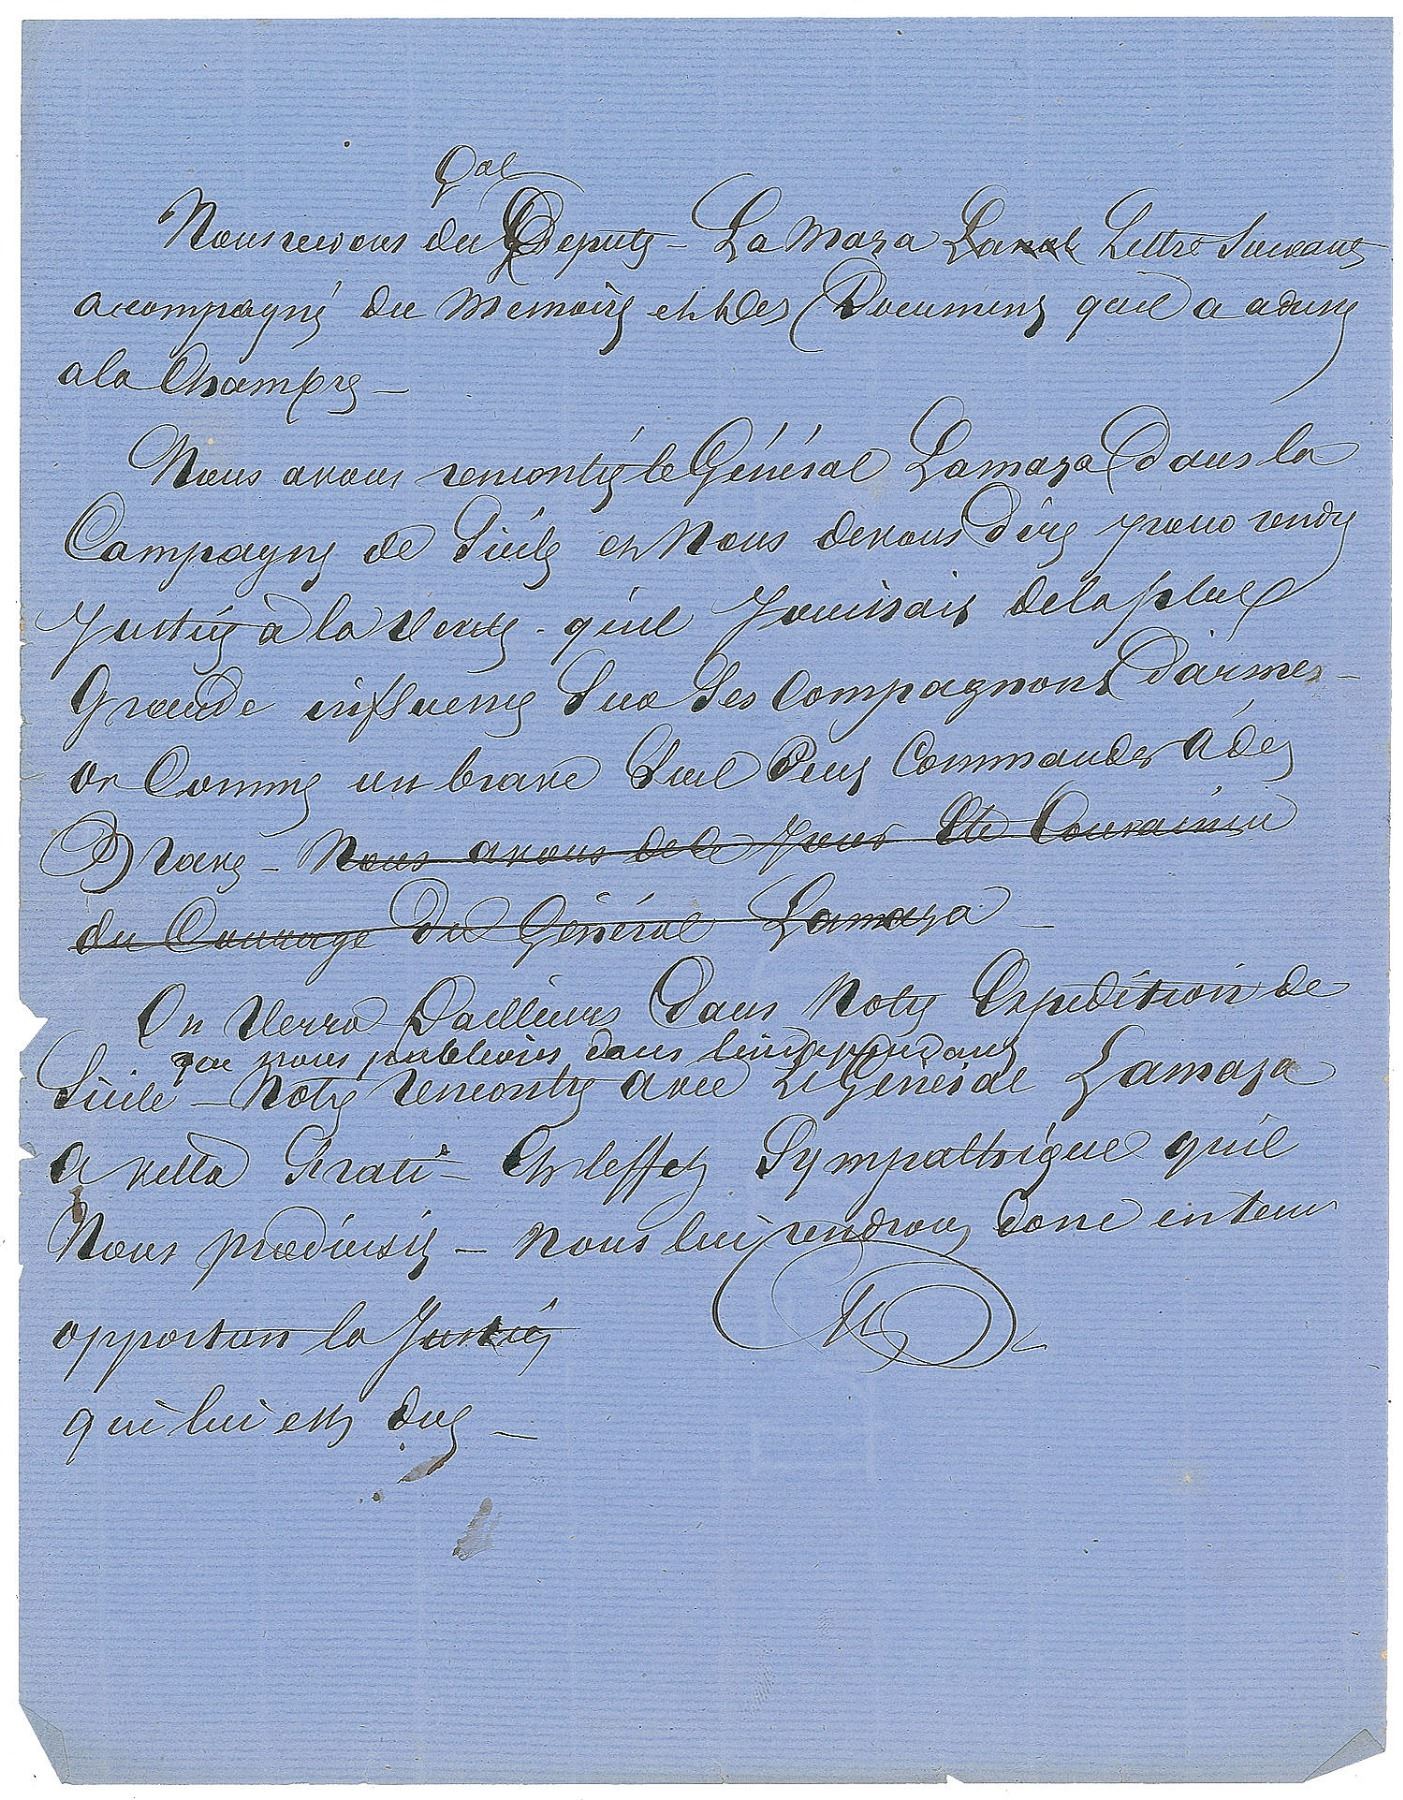 Gal
Nous recevons du Deputé - La Maza La Lettre Suivante
acompagné du Memoire et des Documens qu'il a adressé
a la Chambre -
Nous avons rencontré le Général Lamaza dans la
Campagne de Sicile et Nous devons dire pour rendre
Justice à la Verité - qu'il Jouissait de la plus
Grande influence Sur Ses Compagnons d'armes -
or Comme un brave Seul Peut Commander A des
Brave - Nous avons de le Pour Ete Convaincu
du Courage du Général Lamaza -
On Verra Dailleurs Dans Notre Expédition de
que nous publions dans l'indépendant
Sicile - Notre rencontre avec Le Général Lamaza
A Et l'effet Sympathique qu'il
Nous produisit - Nous lui rendrons donc en tems
opportun la Justice
qui lui est due -